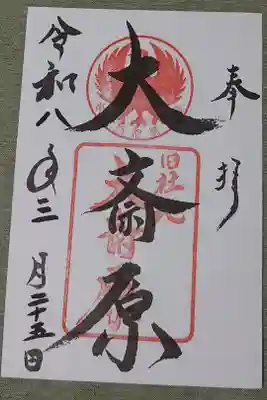 奉拝
大斎原
旧社地
令和八年三月二十五日